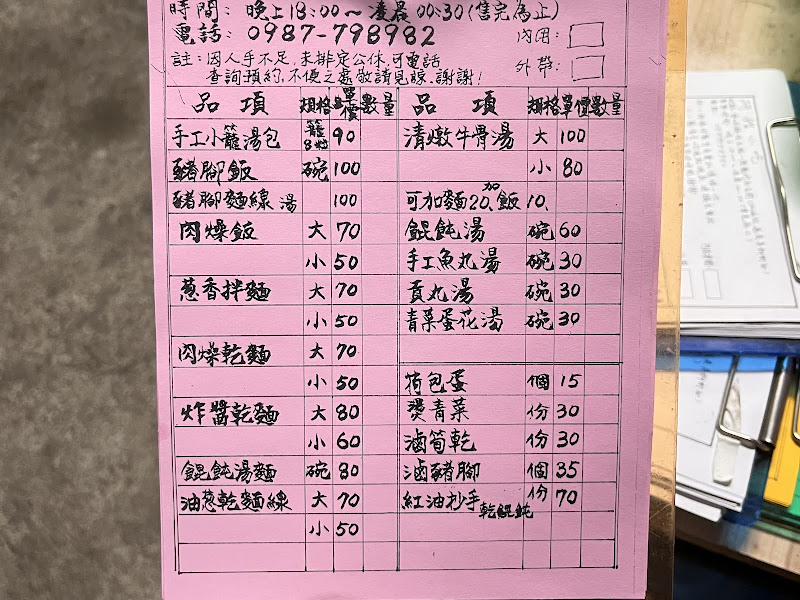 時間: 晚上18:00~凌晨00:30(售完為止)
電話: 0987-798982 內用:
註:因人手不足,未排定公休,可電話 外帶:
查詢預約,不便之處敬請見諒.謝謝!
品項 規格 單價 數量 品項 規格 單價 數量
手工小籠湯包 籠8粒 90 清燉牛骨湯 大 100
豬腳飯 碗 100 小 80
豬腳麵線湯 100 可加麵20、加飯10、
肉燥飯 大 70 餛飩湯 碗 60
小 50 手工魚丸湯 碗 30
蔥香拌麵 大 70 貢丸湯 碗 30
小 50 青菜蛋花湯 碗 30
肉燥乾麵 大 70
小 50 荷包蛋 個 15
炸醬乾麵 大 80 燙青菜 份 30
小 60 滷筍乾 份 30
餛飩湯麵 碗 80 滷豬腳 個 35
油蔥乾麵線 大 70 紅油抄手乾餛飩 份 70
小 50